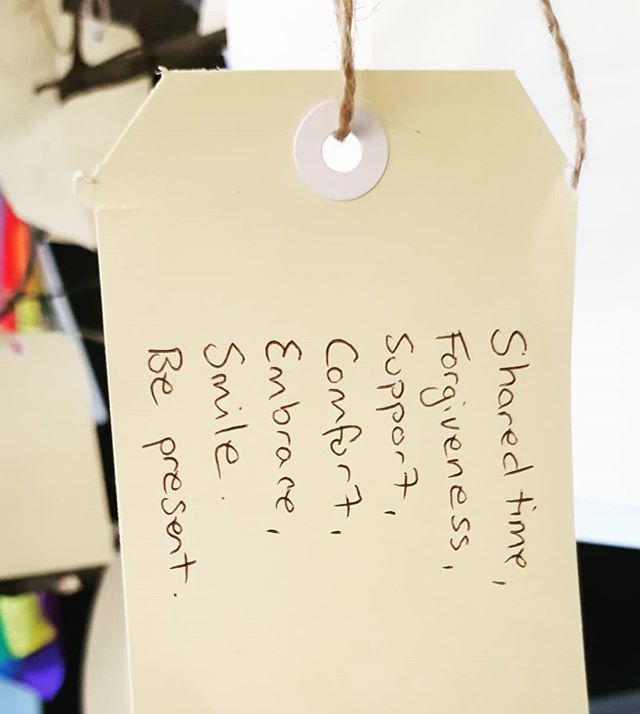 Shared time,
Forgiveness,
Support,
Comfort,
Embrace,
Smile.
Be present.